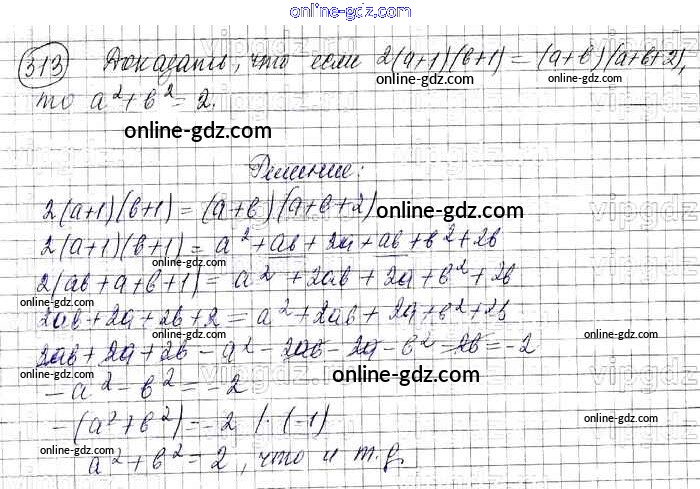 online-gdz.com
313 Доказать, что если 2(a+1)(b+1) = (a+b)(a+b+2),
online-gdz.com online-gdz.com
то a²+b²=2.
online-gdz.com
Решение:
2(a+1)(b+1) = (a+b)(a+b+2)
online-gdz.com
vipgdz
2(a+1)(b+1) = a²+ab+2a+ab+b²+2b
2(ab+a+b+1) = a²+2ab+2a+b²+2b
online-gdz.com online-gdz.com
2ab+2a+2b+2 = a²+2ab+2a+b²+2b
online-gdz.com
2ab+2a+2b-a²-2ab-2a-b²-2b=-2
online-gdz.com online-gdz.com
-a²-b²=-2
-(a²+b²)=-2 |·(-1)
online-gdz.com online-gdz.com
a²+b²=2, что и т.д.
online-gdz.com